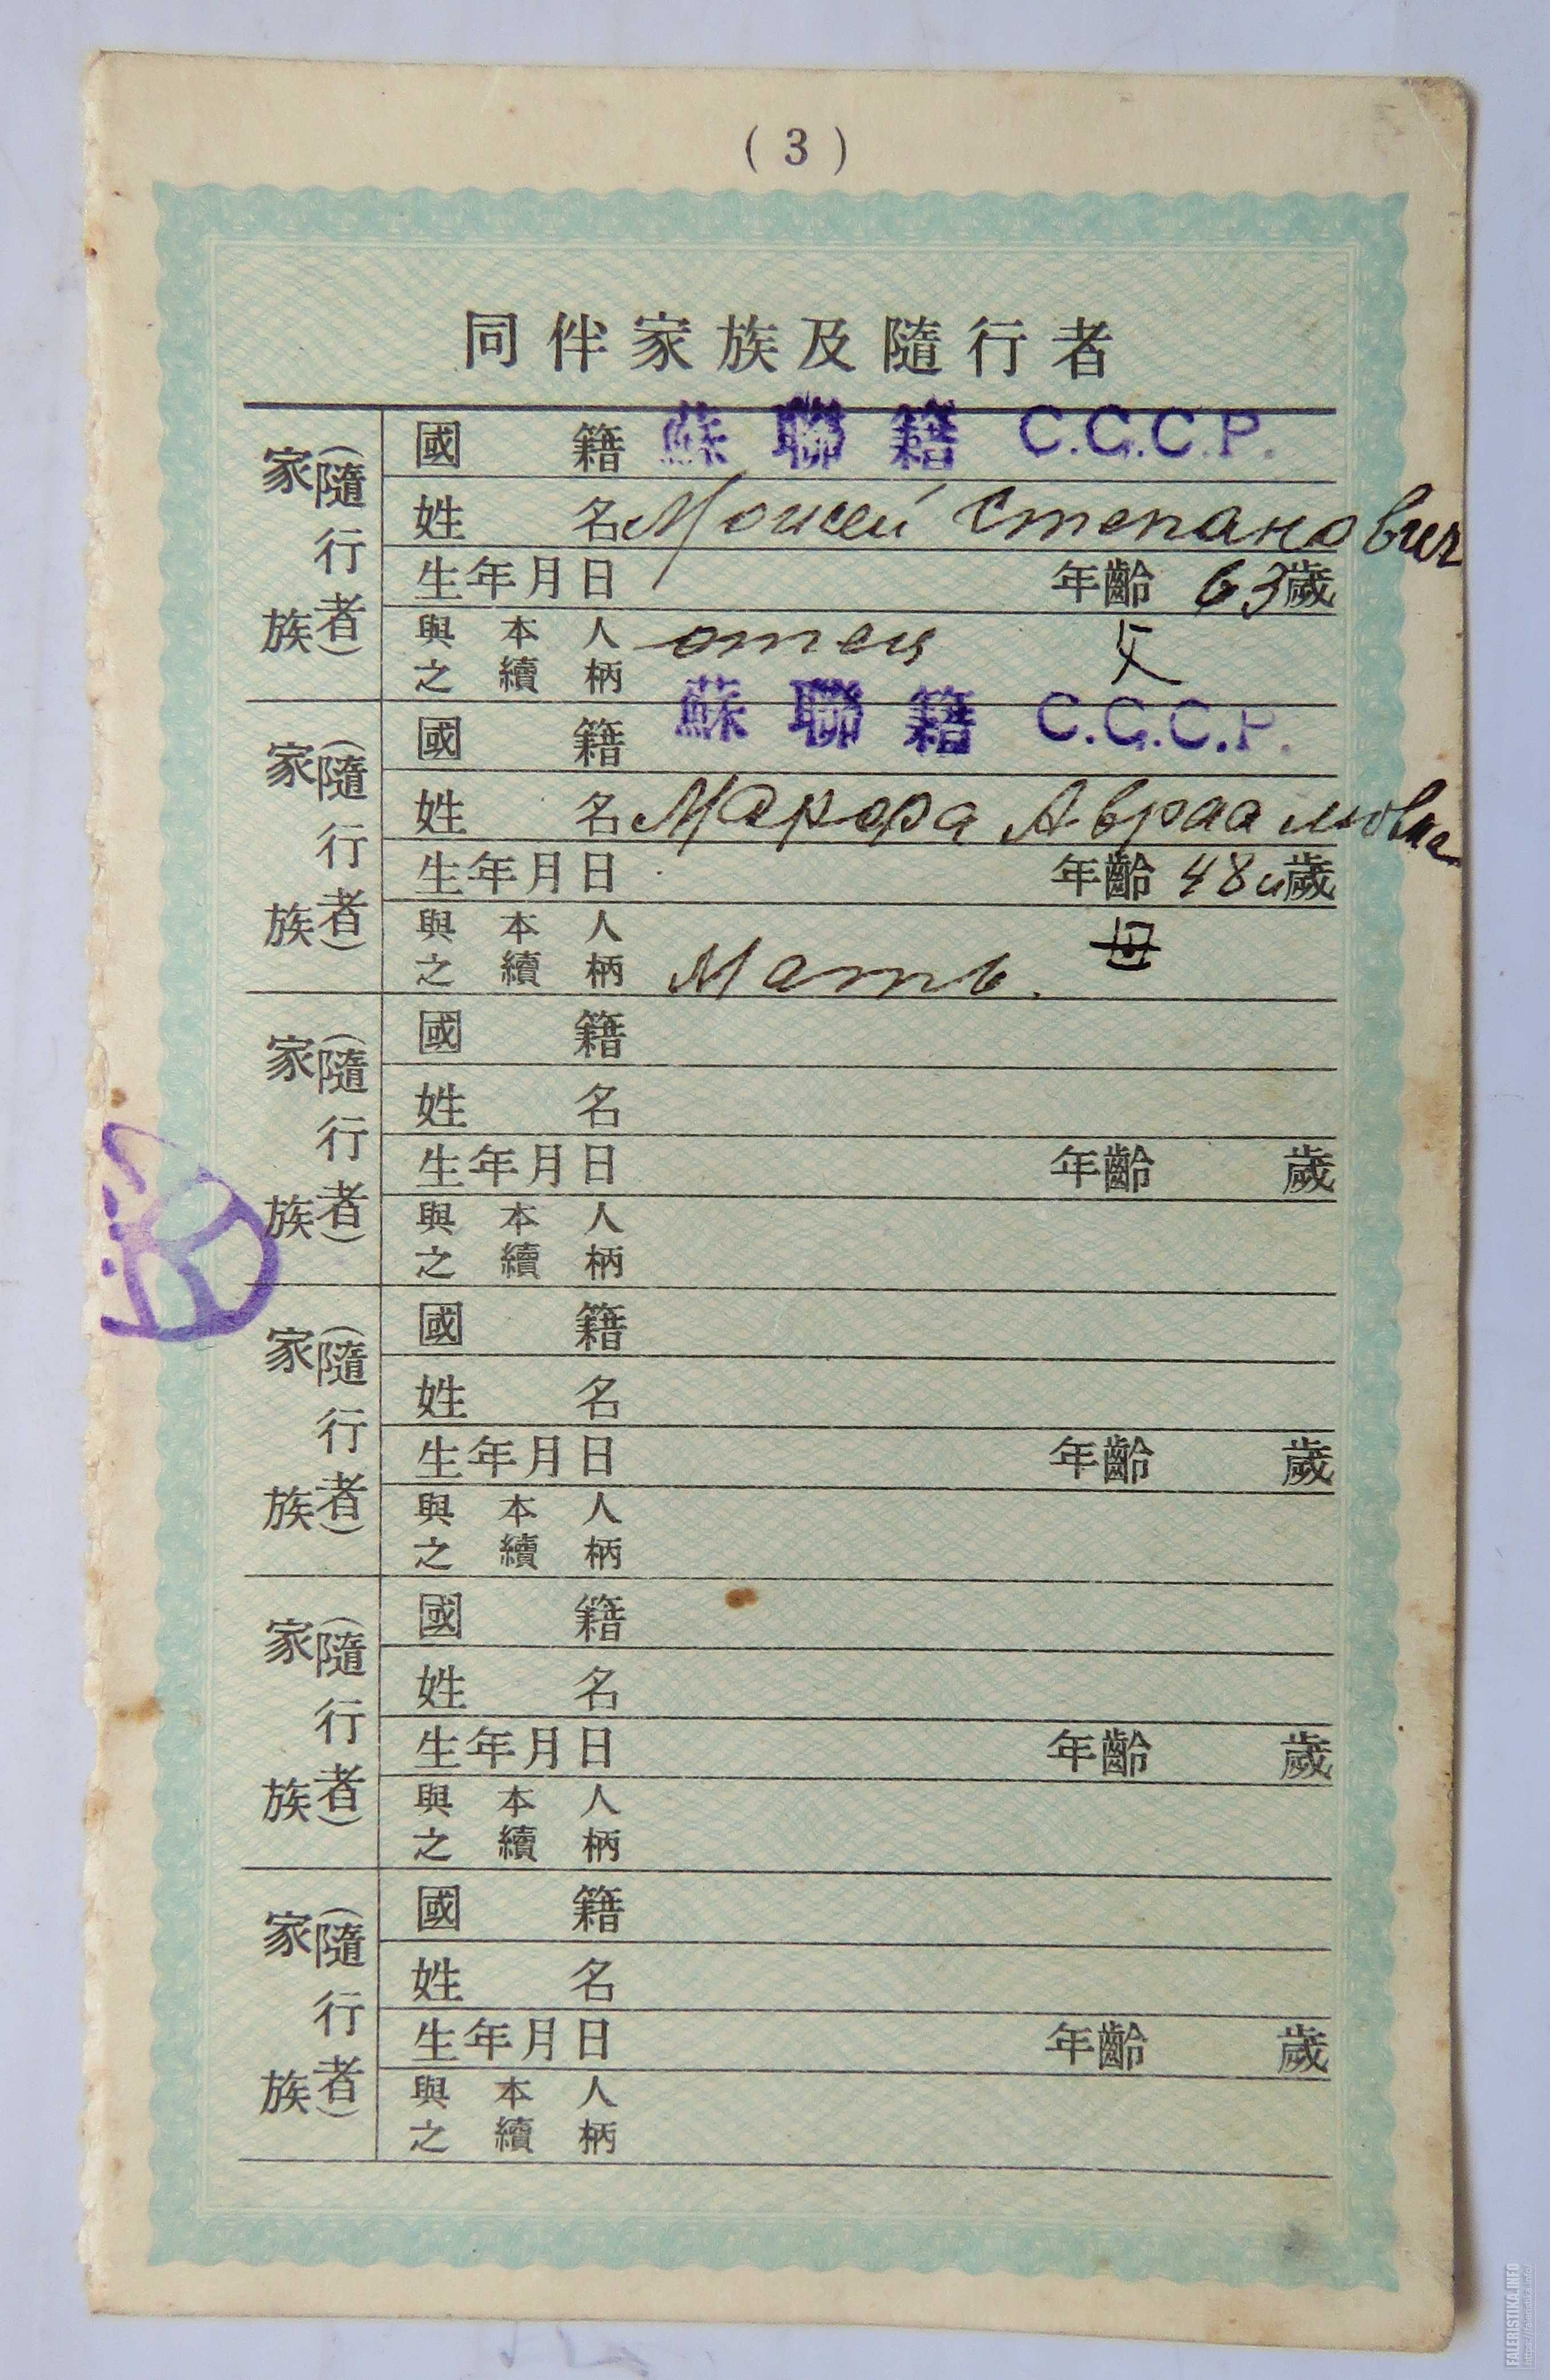 ( 3 )
同伴家族及隨行者
家族(隨行者)
國籍 蘇聯籍 С.С.С.Р.
姓名 Моисей Степанович
生年月日 年齡 63歲
與本人 отец 父
之續柄
家族(隨行者)
國籍 蘇聯籍 С.С.С.Р.
姓名 Авраамовна
生年月日 年齡 48 歲
與本人 母
之續柄 Мать.
家族(隨行者)
國籍
姓名
生年月日 年齡 歲
與本人
之續柄
家族(隨行者)
國籍
姓名
生年月日 年齡 歲
與本人
之續柄
家族(隨行者)
國籍
姓名
生年月日 年齡 歲
與本人
之續柄
家族(隨行者)
國籍
姓名
生年月日 年齡 歲
與本人
之續柄
FALERISTIKA.INFO
https://faleristika.info/